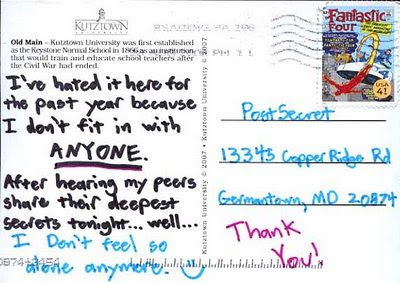 KUTZTOWN
UNIVERSITY
Old Main – Kutztown University was first established
as the Keystone Normal School in 1866 as an institution
that would train and educate school teachers after
the Civil War had ended.
I've hated it here for
the past year because
I don't fit in with
ANYONE.
After hearing my peers
share their deepest
secrets tonight... well...
I Don't feel so
alone anymore.
Kutztown University © 2007 • Kutztown University © 2007
READING PA 196
Fantastic
Four
USA
41
PostSecret
13345 Copper Ridge Rd
Germantown, MD 20874
Thank
You!